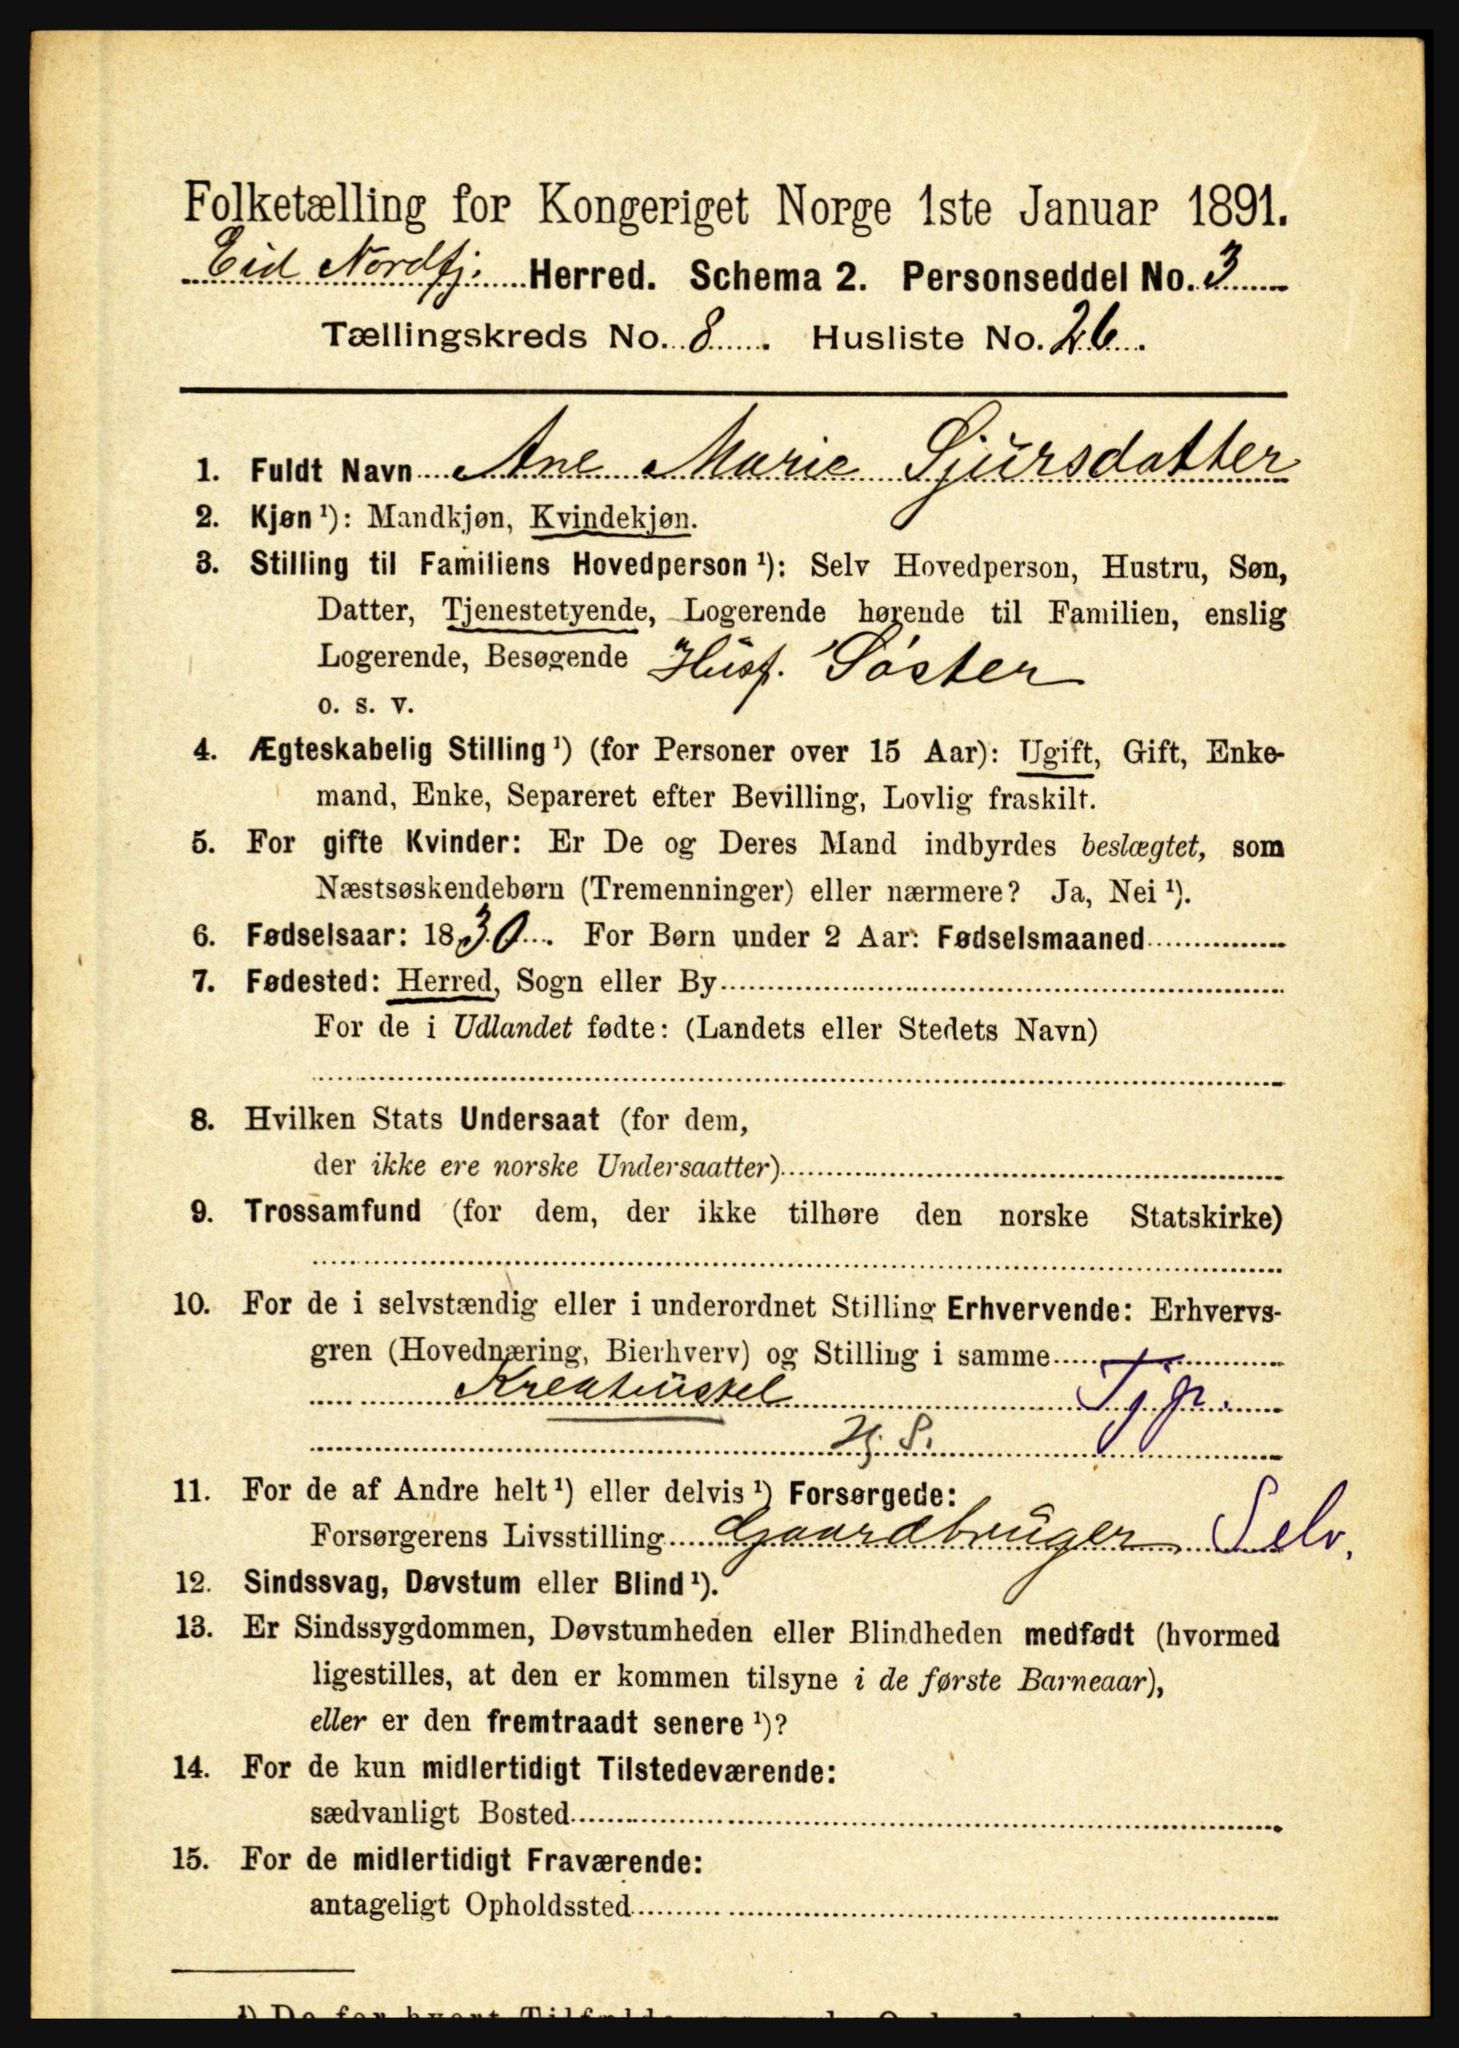 Folketælling for Kongeriget Norge 1ste Januar 1891.
Eid Nordfj. Herred. Schema 2. Personseddel No. 3
Tællingskreds No. 8. Husliste No. 26.
1. Fuldt Navn Ane Marie Sjursdatter
2. Kjøn ¹): Mandkjøn, Kvindekjøn.
3. Stilling til Familiens Hovedperson ¹): Selv Hovedperson, Hustru, Søn,
Datter, Tjenestetyende, Logerende hørende til Familien, enslig
Logerende, Besøgende Husf. Søster
o. s. v.
4. Ægteskabelig Stilling ¹) (for Personer over 15 Aar): Ugift, Gift, Enke-
mand, Enke, Separeret efter Bevilling, Lovlig fraskilt.
5. For gifte Kvinder: Er De og Deres Mand indbyrdes beslægtet, som
Næstsøskendebørn (Tremenninger) eller nærmere? Ja, Nei ¹).
6. Fødselsaar: 1830. For Børn under 2 Aar: Fødselsmaaned
7. Fødested: Herred, Sogn eller By
For de i Udlandet fødte: (Landets eller Stedets Navn)
8. Hvilken Stats Undersaat (for dem,
der ikke ere norske Undersaatter)
9. Trossamfund (for dem, der ikke tilhøre den norske Statskirke)
10. For de i selvstændig eller i underordnet Stilling Erhvervende: Erhvervs-
gren (Hovednæring, Bierhverv) og Stilling i samme
Kreaturstel Tjgr.
11. For de af Andre helt ¹) eller delvis ¹) Forsørgede:
Forsørgerens Livsstilling Gaardbruger Selv.
12. Sindssvag, Døvstum eller Blind ¹).
13. Er Sindssygdommen, Døvstumheden eller Blindheden medfødt (hvormed
ligestilles, at den er kommen tilsyne i de første Barneaar),
eller er den fremtraadt senere ¹)?
14. For de kun midlertidigt Tilstedeværende:
sædvanligt Bosted
15. For de midlertidigt Fraværende:
antageligt Opholdssted